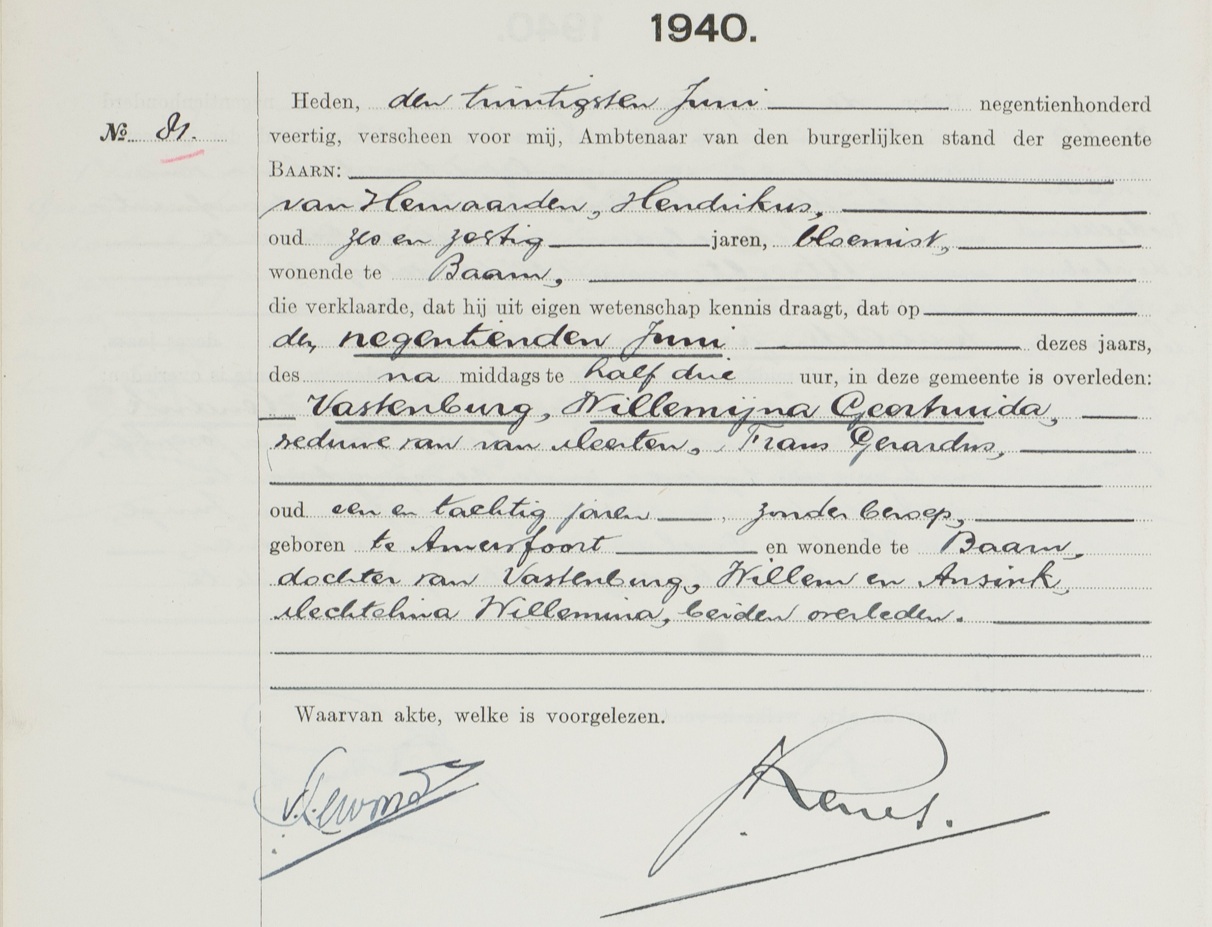 1940.
Heden, den twintigsten Juni negentienhonderd
No. 81.
veertig, verscheen voor mij, Ambtenaar van den burgerlijken stand der gemeente
BAARN:
van Hemaarden, Hendrikus,
oud zes en zestig jaren, bloemist,
wonende te Baarn,
die verklaarde, dat hij uit eigen wetenschap kennis draagt, dat op
den negentienden Juni dezes jaars,
des na middags te half drie uur, in deze gemeente is overleden:
Vastenburg, Willemijna Geertruida,
weduwe van van Meerten, Frans Gerardus,
oud een en tachtig jaren, zonder beroep,
geboren te Amersfoort en wonende te Baarn,
dochter van Vastenburg, Willem en Ansink,
Mechtelina Willemina, beiden overleden.
Waarvan akte, welke is voorgelezen.